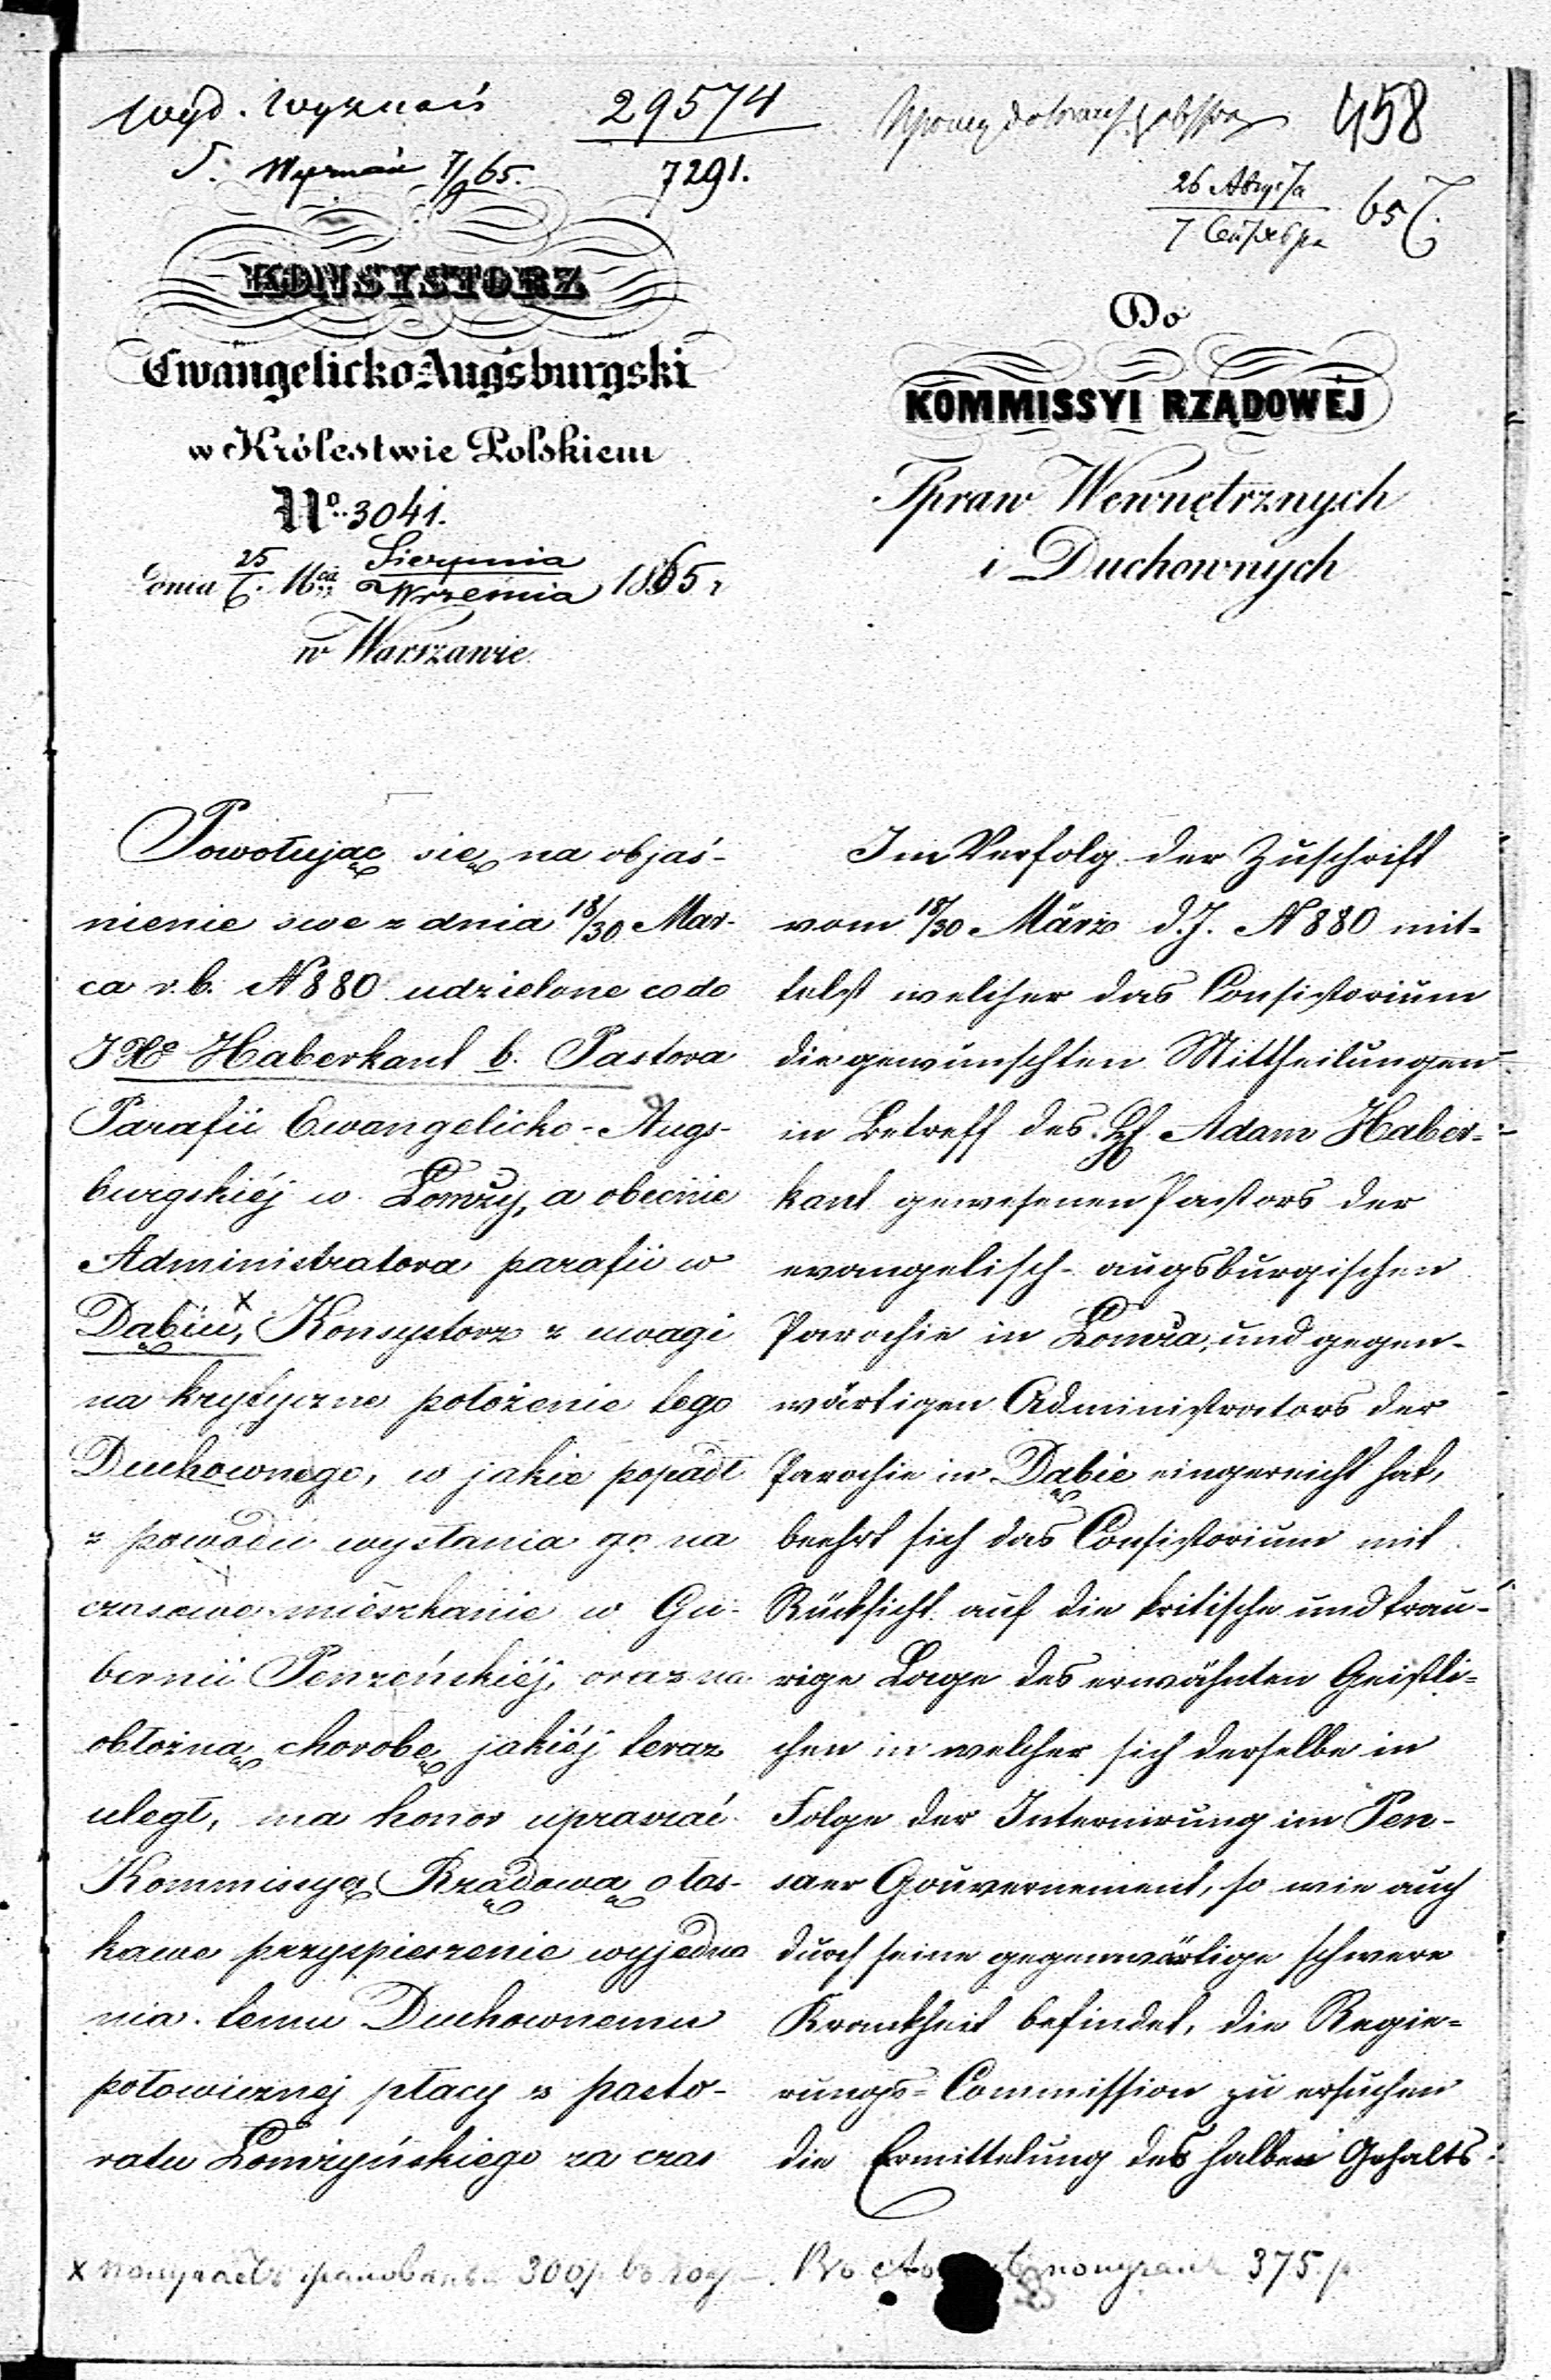 Wyd. Wyznań
29574
7291.
S. Wyznań 7/9 65.
458
26 Августа
7 Сентября
65 г.
KONSYSTORZ
Ewangelicko-Augsburgski
w Królestwie Polskiem
No. 3041.
dnia 25/6. Mca Sierpnia/Września 1865 r
w Warszawie
Do
KOMMISSYI RZĄDOWÉJ
Spraw Wewnętrznych
i Duchownych
Powołując się na objaś-
nienie swe z dnia 18/30 Mar-
ca r.b. N 880 udzielone co do
JX Haberkant b. Pastora
Parafii Ewangelicko-Augs-
burgskiéj w Łomży, a obecnie
Administratora parafii w
Dąbiu, x Konsystorz z uwagi
na krytyczne położenie tego
Duchownego, w jakie popadł
z powodu wysłania go na
czasowe mieszkanie w Gu-
bernii Penzeńskiéj, oraz na
obłożną chorobę jakiéj teraz
uległ, ma honor upraszać
Kommissyą Rządową o łas-
kawe przyspieszenie wyjedna
nia temu Duchownemu
połowicznej płacy z pasto-
ratu Łomżyńskiego za czas
Im Verfolg der Zuschrift
vom 18/30 März d.J. N 880 mit-
telst welcher das Consistorium
die gewünschten Mittheilungen
in Betreff des Adam Haber-
kant gewesenen Pastors der
evangelisch-augsburgischen
Parochie in Łomża, und gegen-
wärtigen Administrators der
Parochie in Dąbie eingereicht hat,
beehrt sich das Consistorium mit
Rücksicht auf die kritische und trau-
rige Lage des erwähnten Geistli-
chen in welcher sich derselbe in
Folge der Internirung im Pen-
saer Gouvernement, so wie auch
durch seine gegenwärtige schwere
Krankheit befindet, die Regie-
rungs-Commission zu ersuchen
die Ermittelung des halben Gehalts
x получаетъ жалованья 300 р. въ годъ
получалъ 375 р.